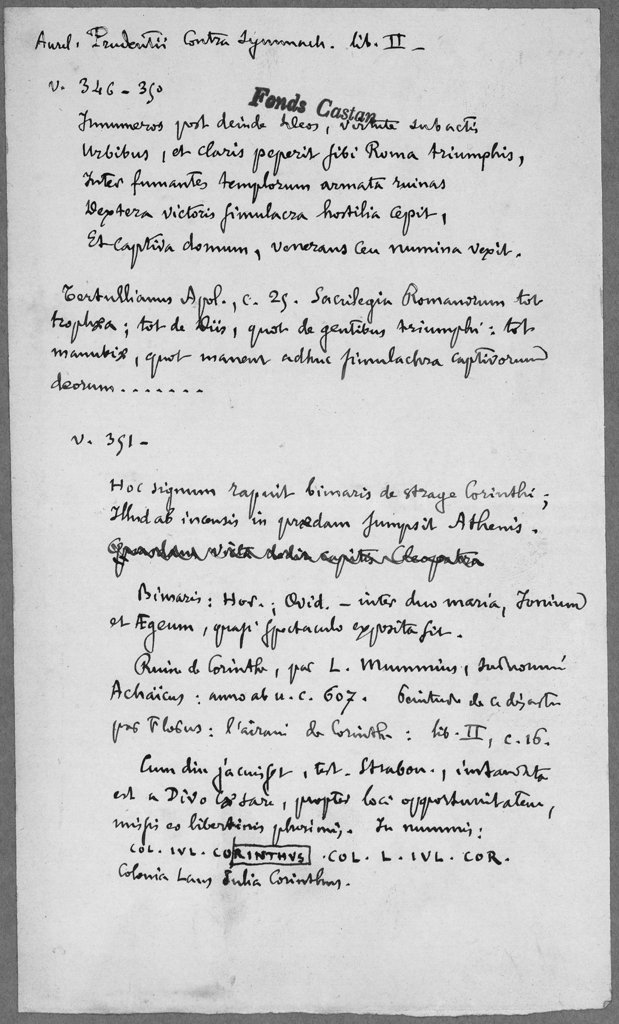 Aurel. Prudentii Contra Symmach. lib. II —
v. 346 - 350
Fonds Castan
Innumeros post deinde Deos, virtute subactis
Urbibus, et claris peperit sibi Roma triumphis,
Inter fumantes templorum armata ruinas
Dextera victoris simulacra hostilia cepit,
Et captiva domum, venerans ceu numina vexit.
Tertullianus Apol., c. 25. Sacrilegia Romanorum tot
trophæa; tot de Diis, quot de gentibus triumphi: tot
manubiæ, quot manent adhuc simulachra captivorum
deorum .......
v. 351 -
Hoc signum rapuit bimaris de strage Corinthi;
Illud ab incensis in prædam sumpsit Athenis.
Quasdam victa dedit capitis Cleopatra
Bimaris: Hor.; Ovid. — inter duo maria, Ionium
et Ægeum, quasi spectaculo exposita sit.
Ruine de Corinthe, par L. Mummius, surnommé
Achaïcus: anno ab u. c. 607. Peinture de ce désastre
par Florus: l'airain de Corinthe: lib. II, c. 16.
Cum diu jacuisset, test. Strabon., instaurata
est a Divo Cæsare, propter loci opportunitatem,
missis eo libertinis plurimis. In nummis:
COL. IVL. CORINTHVS. COL. L. IVL. COR.
Colonia Laus Julia Corinthus.